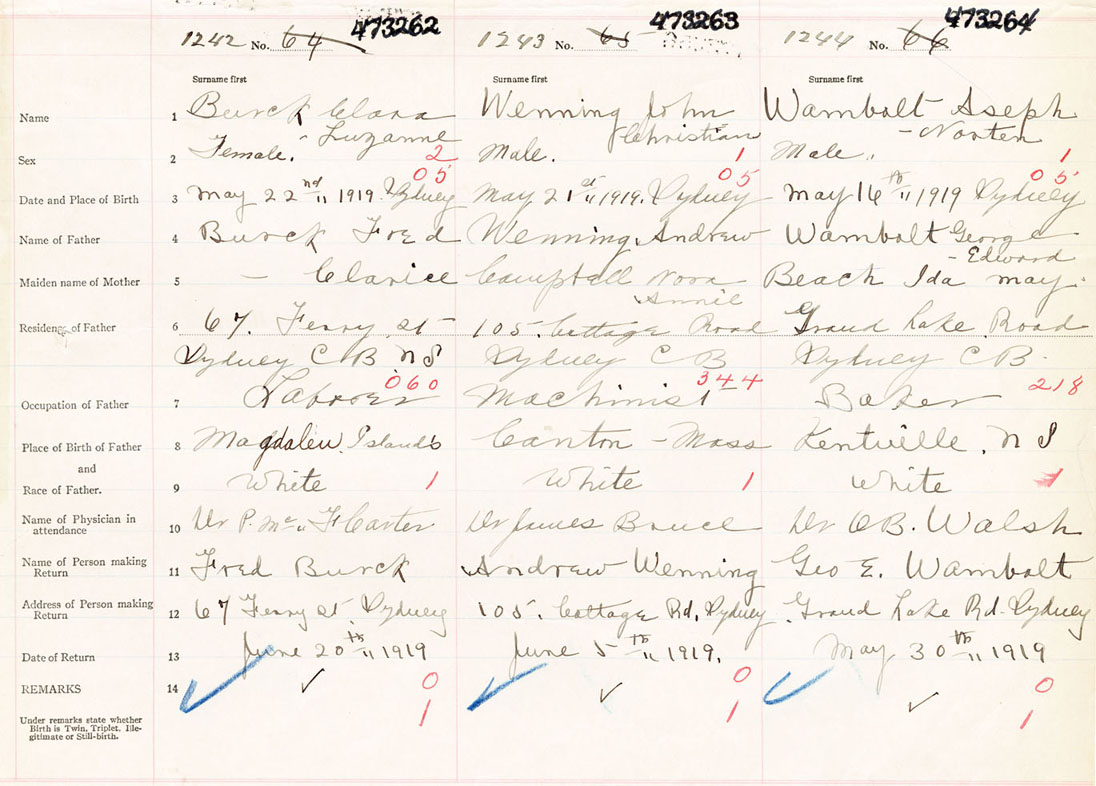 473262 473263 473264
1242 No. 64 1243 No. 65 1244 No. 66
Surname first Surname first Surname first
Name 1 Burck Clara Wenning John Wambolt Aseph
- Luzanne Christian - Norten
Sex 2 Female. 2 Male. 1 Male. 1
05 05 05
Date and Place of Birth 3 May 22nd 1919. Sydney May 21st 1919. Sydney May 16th 1919 Sydney
Name of Father 4 Burck Fred Wenning, Andrew Wambolt George
- Edward
Maiden name of Mother 5 — Clarice Campbell Nora Beach Ida May.
Annie
Residence of Father 6 67. Ferry St 105. Cottage Road Grand Lake Road
Sydney C B N S Sydney C B Sydney C B.
060 344 218
Occupation of Father 7 Laborer Machinist Baker
Place of Birth of Father 8 Magdalen Islands Canton - Mass Kentville, N S
and
Race of Father. 9 White 1 White 1 White 1
Name of Physician in
attendance 10 Dr P. Mc F Carter Dr James Bruce Dr O B. Walsh
Name of Person making
Return 11 Fred Burck Andrew Wenning Geo E. Wambolt
Address of Person making
Return 12 67 Ferry St. Sydney 105. Cottage Rd, Sydney Grand Lake Rd. Sydney
Date of Return 13 June 20th 1919 June 5th 1919. May 30th 1919
REMARKS 14 0 0 0
Under remarks state whether
Birth is Twin, Triplet, Ille-
gitimate or Still-birth.
1 1 1